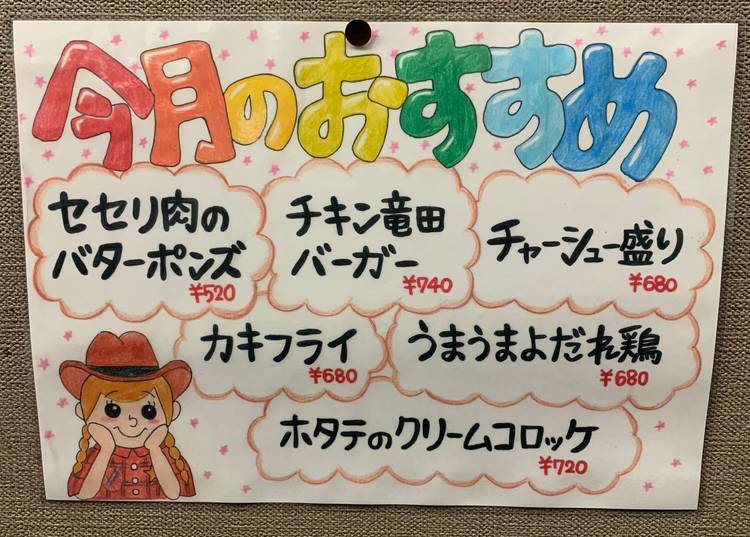 今月のおすすめ
セセリ肉の
バターポンズ
¥520
チキン竜田
バーガー
¥740
チャーシュー盛り
¥680
カキフライ
¥680
うまうまよだれ鶏
¥680
ホタテのクリームコロッケ
¥720